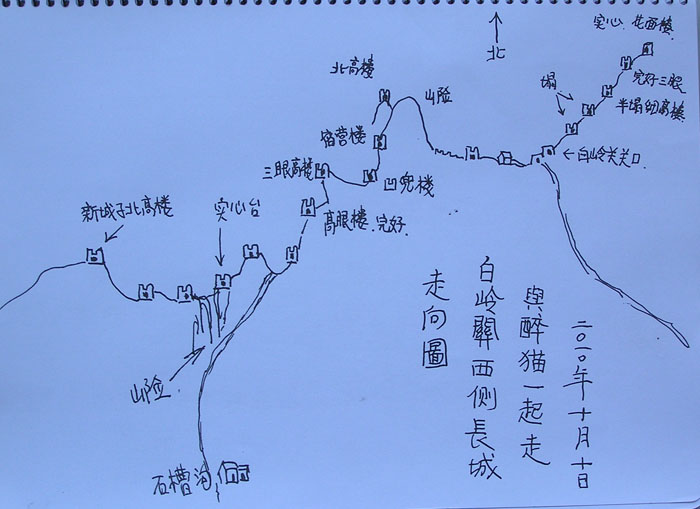 实心 花面楼
北
北高楼
山险
塌
完好三眼
半塌的高楼
宿营楼
←白岭关关口
三眼高楼
凹兜楼
新城子北高楼
实心台
高眼楼.完好.
山险
石槽沟
二〇一〇年十月十日
與醉猫一起走
白岭關西侧長城
走向圖